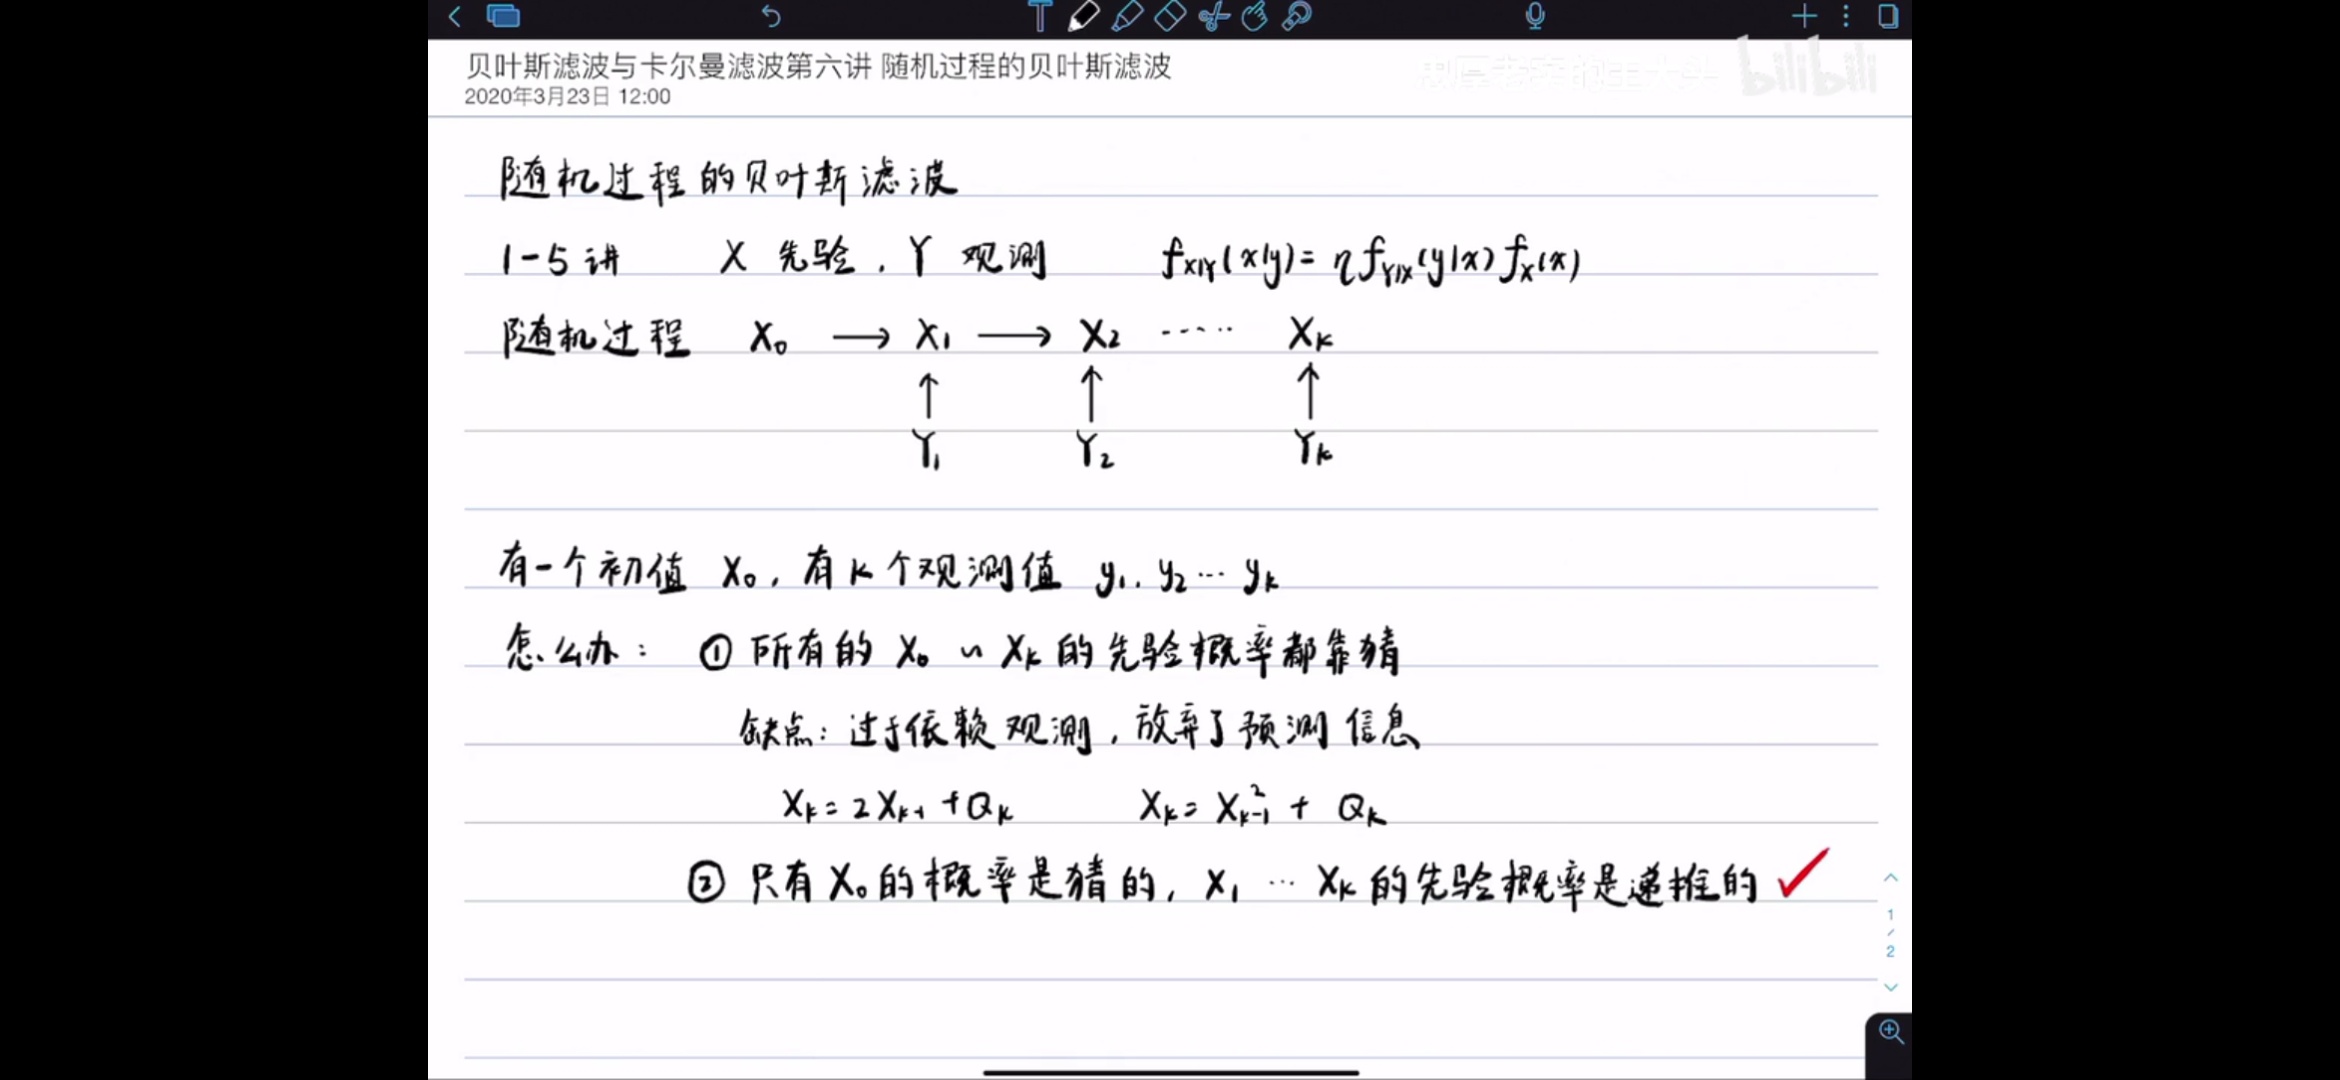 贝叶斯滤波与卡尔曼滤波第六讲 随机过程的贝叶斯滤波
bilibili
2020年3月23日 12:00
随机过程的贝叶斯滤波
1-5讲 X 先验, Y 观测 f_{X|Y}(x|y)= η f_{Y|X}(y|x) f_X(x)
随机过程 X₀ → X₁ → X₂ ······ X_k
↑ ↑ ↑
Y₁ Y₂ Y_k
有一个初值 X₀, 有k个观测值 y₁, y₂ … y_k
怎么办: ① 所有的 X₀ ~ X_k 的先验概率都靠猜
缺点: 过于依赖观测, 放弃了预测信息
X_k = 2X_{k-1} + Q_k X_k = X²_{k-1} + Q_k
② 只有X₀的概率是猜的, X₁ … X_k 的先验概率是递推的 ✓
1
/
2